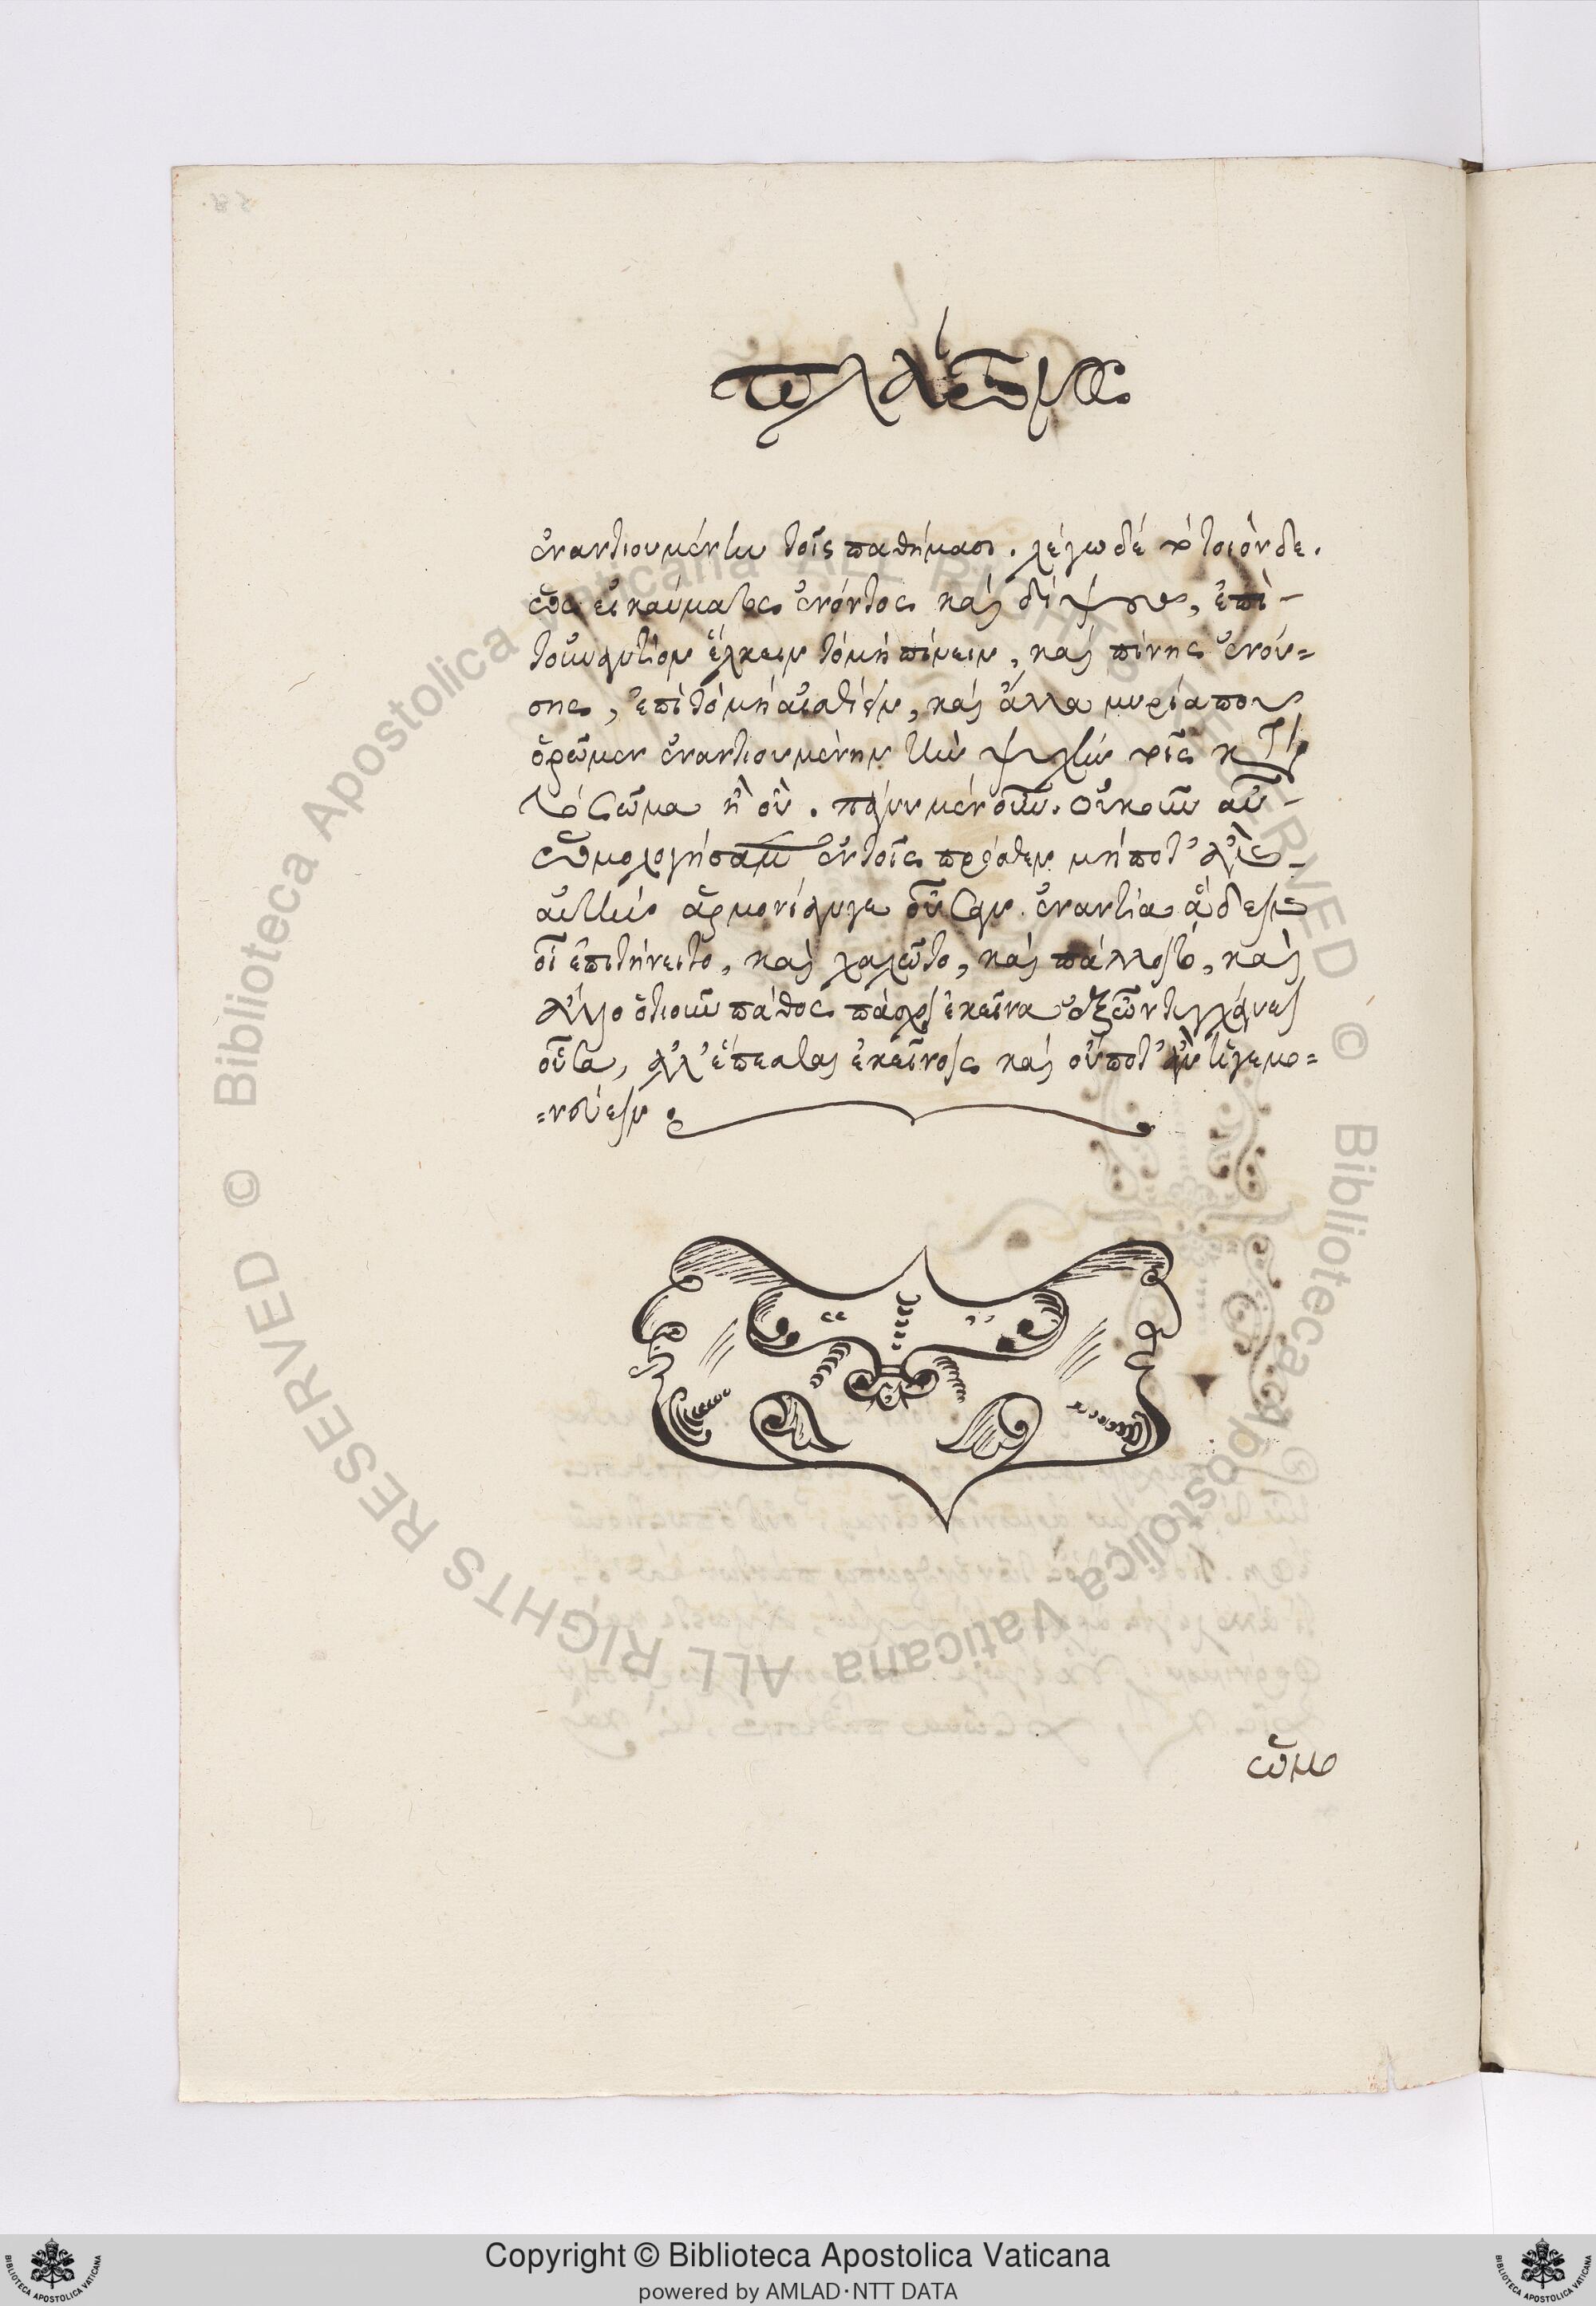 ἐναντιουμένην τοῖς παθήμασι. λέγω δέ τὸ τοιόνδε.
ὡς εἰ καύματος ἐνόντος καὶ δίψους, ἐπὶ-
τοὐναντίον ἕλκειν τὸ μὴ πίνειν, καὶ πίνης ἐνού=
σης, ἐπὶ τὸ μὴ ἐσθίειν, καὶ ἄλλα μυρία που
ὁρῶμεν ἐναντιουμένην τὴν ψυχὴν τοῖς κατὰ
τὸ σῶμα ἢ οὔ. πάνυ μὲν οὖν. οὐκοῦν αὖ-
ὡμολογήσαμεν ἐν τοῖς πρόσθεν μήποτ' ἂν
αὐτὴν ἁρμονίαν γε οὖσαν ἐναντία ᾄδειν
οἷς ἐπιτείνοιτο, καὶ χαλῷτο, καὶ πάλλοιτο, καὶ
ἄλλο ὁτιοῦν πάθος πάσχοι ἐκεῖνα ἐξ ὧν τυγχάνει
οὖσα, ἀλλ' ἕπεσθαι ἐκείνοις καὶ οὔποτ' ἂν ἡγεμο=
=νεύειν
Copyright © Biblioteca Apostolica Vaticana
powered by AMLAD·NTT DATA